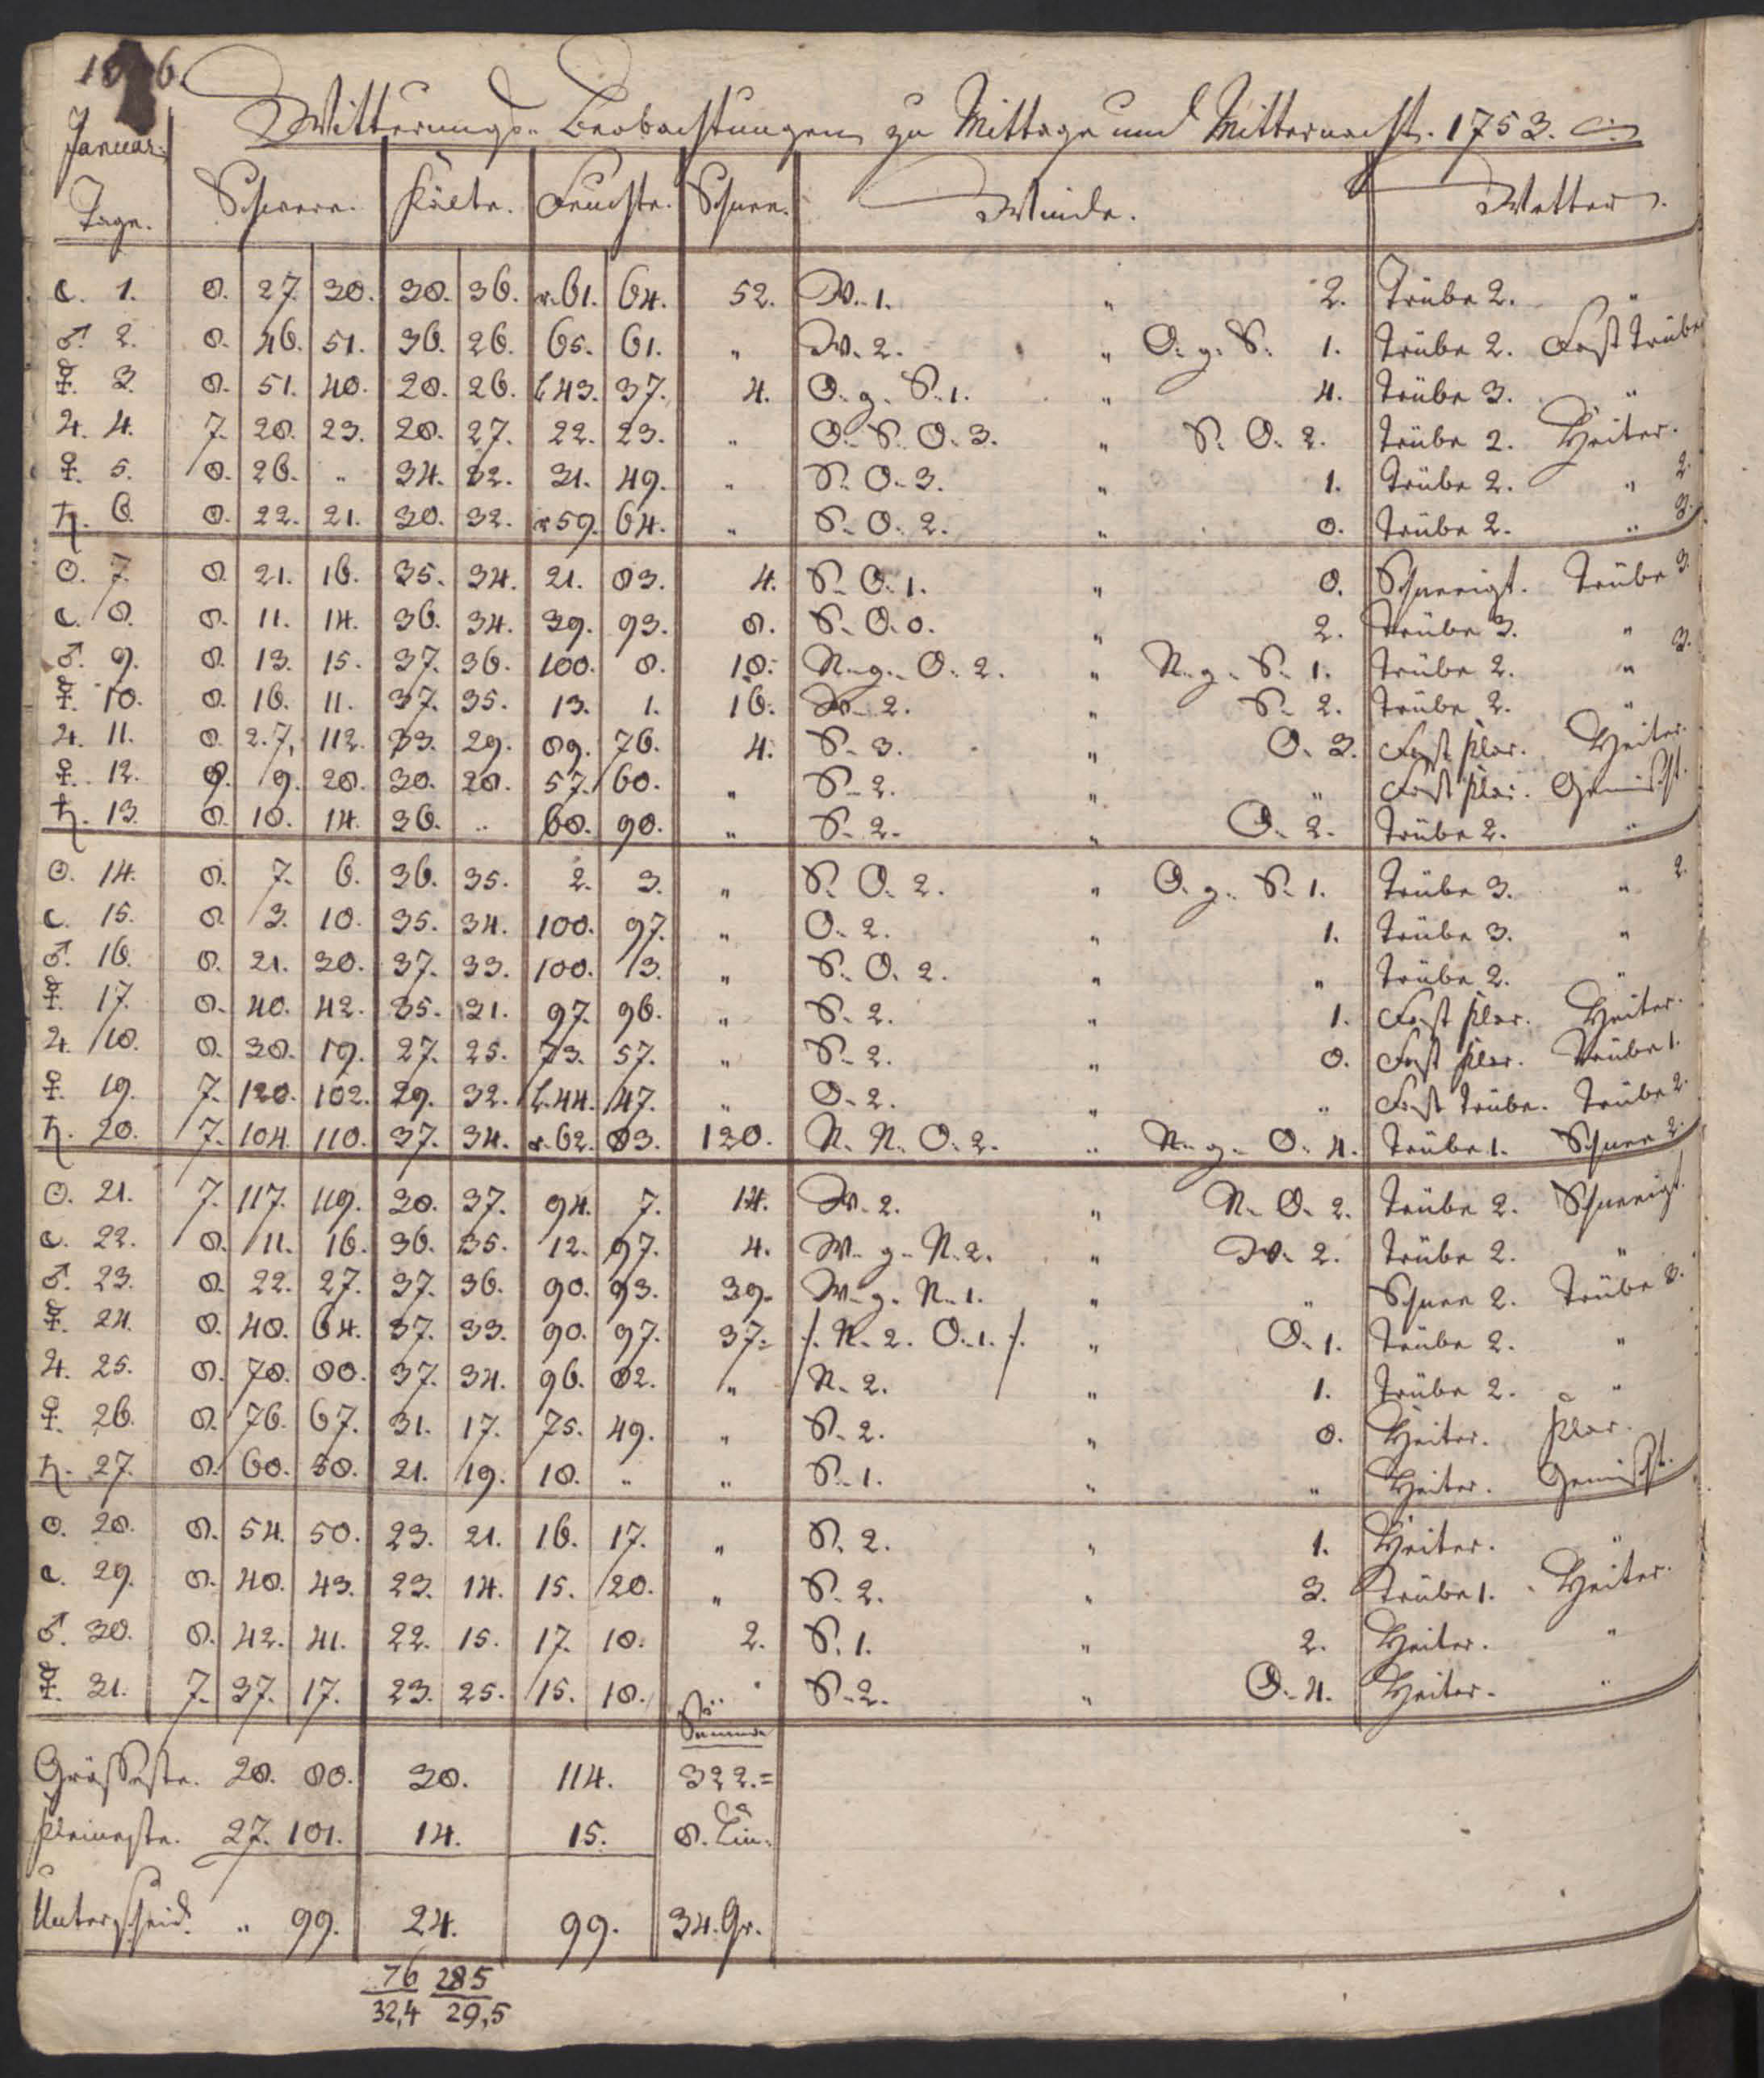 Witterungs- Beobachtungen zu Mittage und Mitternacht. 1753.
Januar.
Tage. Schwere. Kälte. Feuchte. Schnee. Winde. Wetter.
☾. 1. 8. 27. 30. 38. 36. r. 61. 64. 52. W. 1. " 2. Trübe 2. "
♂. 2. 8. 46. 51. 36. 26. 65. 61. " W. 2. " O. g. S. 1. Trübe 2. Fast trübe
☿. 3. 8. 51. 40. 28. 26. l. 43. 37. 4. O. g. S. 1. " 4. Trübe 3. "
♃. 4. 7. 28. 23. 28. 27. 22. 23. " O. S. O. 3. " S. O. 2. Trübe 2. Heiter.
♀. 5. 8. 26. " 34. 32. 31. 49. " S. O. 3. " 1. Trübe 2. " 2.
♄. 6. 8. 22. 21. 30. 32. r 59. 64. " S. O. 2. " 0. Trübe 2. " 3.
☉. 7. 8. 21. 16. 35. 34. 21. 83. 4. S. O. 1. " 0. Schneeigt. Trübe 3.
☾. 8. 8. 11. 14. 36. 34. 39. 93. 8. S. O. 0. " 2. Trübe 3. "
♂. 9. 8. 13. 15. 37. 36. 100. 8. 18. N. g. O. 2. " N. g. S. 1. Trübe 2. " 3.
☿. 10. 8. 16. 11. 37. 35. 13. 1. 16. W. 2. " S. 2. Trübe 2. "
♃. 11. 8. 2. 7, 112. 33. 29. 89. 76. 4. S. 3. " O. 3. Fast klar. Heiter.
♀. 12. 8. 9. 28. 30. 28. 57. 60. " S. 2. " " Fast klar. Gemischt.
♄. 13. 8. 18. 14. 36. " 68. 90. " S. 2. " O. 2. Trübe 2. "
☉. 14. 8. 7. 6. 36. 35. 2. 3. " S. O. 2. " O. g. S. 1. Trübe 3. " 2.
☾. 15. 8. 3. 10. 35. 34. 100. 97. " O. 2. " 1. Trübe 3. "
♂. 16. 8. 21. 30. 37. 33. 100. 3. " S. O. 2. " " Trübe 2. "
☿. 17. 8. 40. 42. 35. 31. 97. 96. " S. 2. " 1. Fast klar. Heiter.
♃. 18. 8. 38. 19. 27. 25. 73. 57. " S. 2. " 0. Fast klar. Trübe 1.
♀. 19. 7. 120. 102. 29. 32. l. 44. 47. " O. 2. " " Fast trübe. Trübe 2.
♄. 20. 7. 104. 110. 37. 34. r. 62. 83. 120. N. N. O. 2. " N. g. O. 4. Trübe 1. Schnee 2.
☉. 21. 7. 117. 119. 38. 37. 94. 7. 14. W. 2. " N. O. 2. Trübe 2. Schneeigt.
☾. 22. 8. 11. 16. 36. 35. 12. 97. 4. W. g. N. 2. " W. 2. Trübe 2. "
♂. 23. 8. 22. 27. 37. 36. 90. 93. 39. W. g. N. 1. " " Schnee 2. Trübe 3.
☿. 24. 8. 48. 64. 37. 33. 90. 97. 37. /. N. 2. O. 1. /. " O. 1. Trübe 2. "
♃. 25. 8. 78. 80. 37. 34. 96. 82. " N. 2. " 1. Trübe 2. "
♀. 26. 8. 76. 67. 31. 17. 75. 49. " S. 2. " 0. Heiter. Klar.
♄. 27. 8. 60. 58. 21. 19. 18. " " S. 1. " " Heiter. Gemischt.
☉. 28. 8. 54. 50. 23. 21. 16. 17. " S. 2. " 1. Heiter. "
☾. 29. 8. 48. 43. 23. 14. 15. 20. " S. 2. " 3. Trübe 1. Heiter.
♂. 30. 8. 42. 41. 22. 15. 17. 18. 2. S. 1. " 2. Heiter. "
☿. 31. 7. 37. 17. 23. 25. 15. 18. " S. 2. " O. 4. Heiter. "
Summa
Grösseste. 28. 80. 38. 114. 322.=
Kleineste. 27. 101. 14. 15. 8. Lin.
Unterscheid. " 99. 24. 99. 34. Gr.
76 285
32,4 29,5